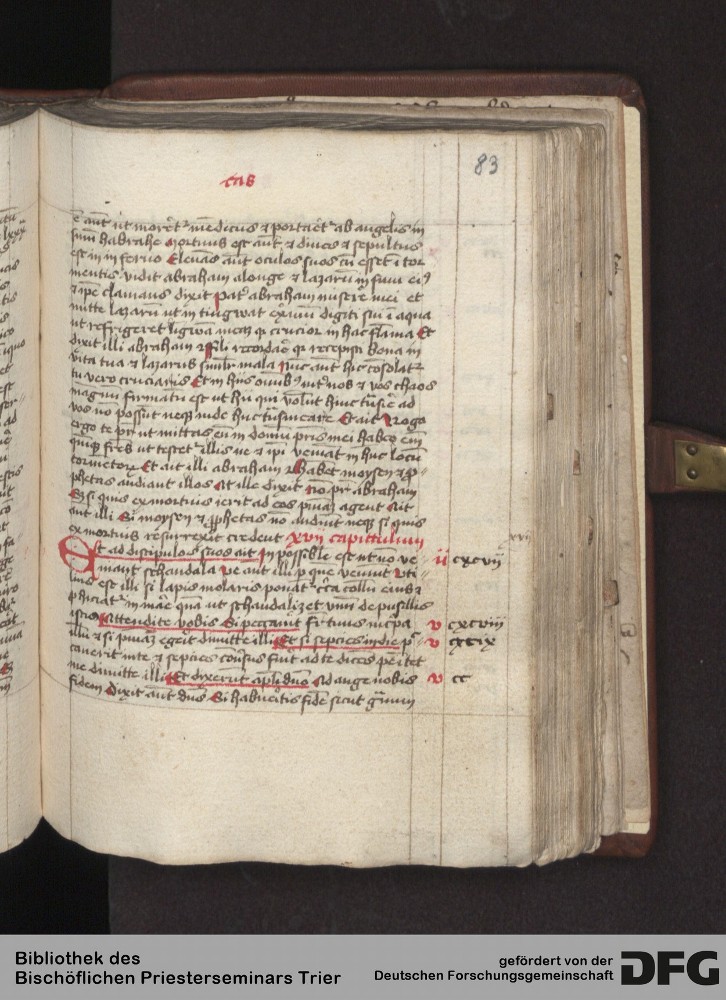 cas
83
e aut ut moret medicus et portaret ab angelis in
sinu habrahe Mortuus est aut et diues et sepultus
est in inferno Eleuas aut oculos suos cu esset i tor
mentis vidit abraham a longe et lazaru in sinu ei9
et ipe clamans dixit Pat abraham misere mei et
mitte lazaru ut intingwat extmu digiti sui i aqua
ut refrigeret ligwa mea qr crucior in hac flama Et
dixit illi abraham Fili recordare qr recepisti bona in
vita tua et lazarus similr mala Nuc aut hic cosolatr
tu vero cruciaris Et in hiis omib9 int nos et vos chaos
magnu firmatu est ut hii qui volut hinc tnsire ad
vos no possut neqz inde huc tnsmeare Et ait Rogo
ergo te pr ut mittas eu in domu pris mei habeo em
quiqz fres ut testet illis ne et ipi veniat in huc locu
tormetorz Et ait illi abraham Habet moysen et p
phetas audiant illos At ille dixit No pr abraham
Sz si quis ex mortuis ierit ad eos pniaz agent Ait
aut illi Si moysen et prophetas no audiut neqz si quis
ex mortuis resurrexit credent xvii capittulum
Et ad discipulos suos ait Inpossible est ut no ve
niant schandala Ve aut illi p que veniut Vti
lius est illi si lapis molaris ponat circa collu eius et
phiciat in mare qua ut schandalizet vnu de pusillis
istis Attendite vobis Si peccauit fr tuus incrpa
illu et si pniaz egerit dimitte illi Et si septies in die pec
cauerit in te et septies couersus fuit ad te dices penitet
me dimitte illi Et dixerut apli dno Adauge nobis
fidem Dixit aut dns Si habueritis fide sicut granu
xvii
ii cxcvii
v cxcviii
v cxcix
v cc
Bibliothek des
Bischöflichen Priesterseminars Trier
gefördert von der
Deutschen Forschungsgemeinschaft
DFG